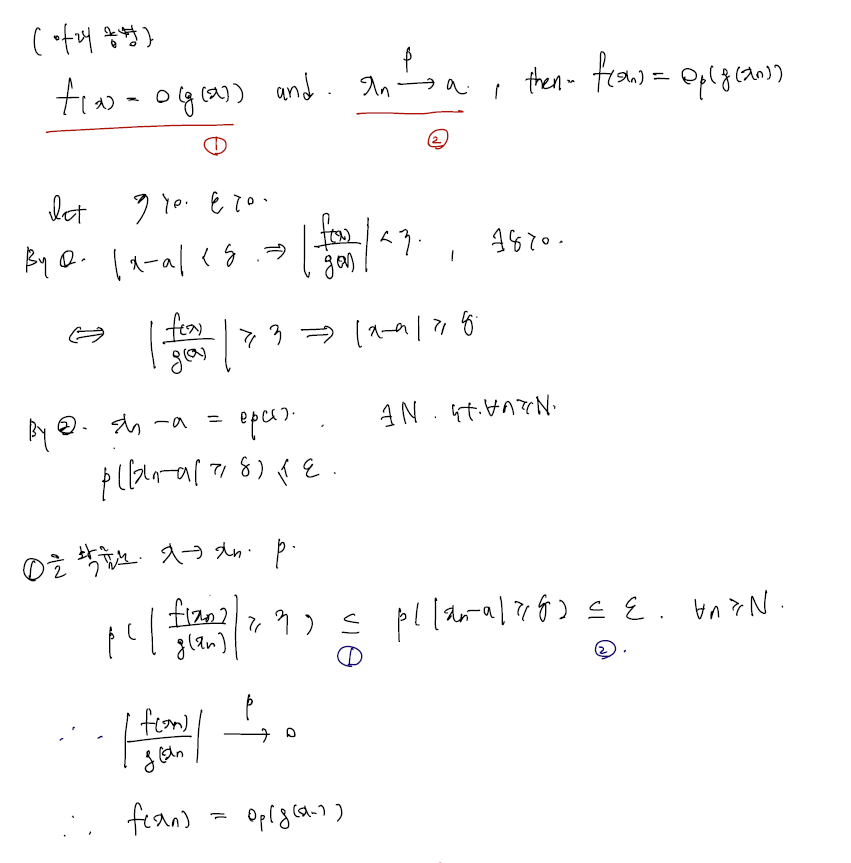 (아래 증명)
f(x) = o(g(x)) and. xₙ →ᵖ a. , then f(xₙ) = op(g(xₙ))
① ②
let η>0. ε>0.
By ①. |x-a| < δ ⇒ |f(x)/g(x)| < η. , ∃δ>0.
⇔ |f(x)/g(x)| ≥ η ⇒ |x-a| ≥ δ
By ②. xₙ - a = op(1). ∃N. s.t. ∀n≥N.
p(|xₙ-a| ≥ δ) ≤ ε.
①을 x → xₙ. p.
p(|f(xₙ)/g(xₙ)| ≥ η) ≤ p(|xₙ-a| ≥ δ) ≤ ε. ∀n ≥ N.
① ②.
∴ |f(xₙ)/g(xₙ| →ᵖ 0
∴ f(xₙ) = op(g(xₙ))